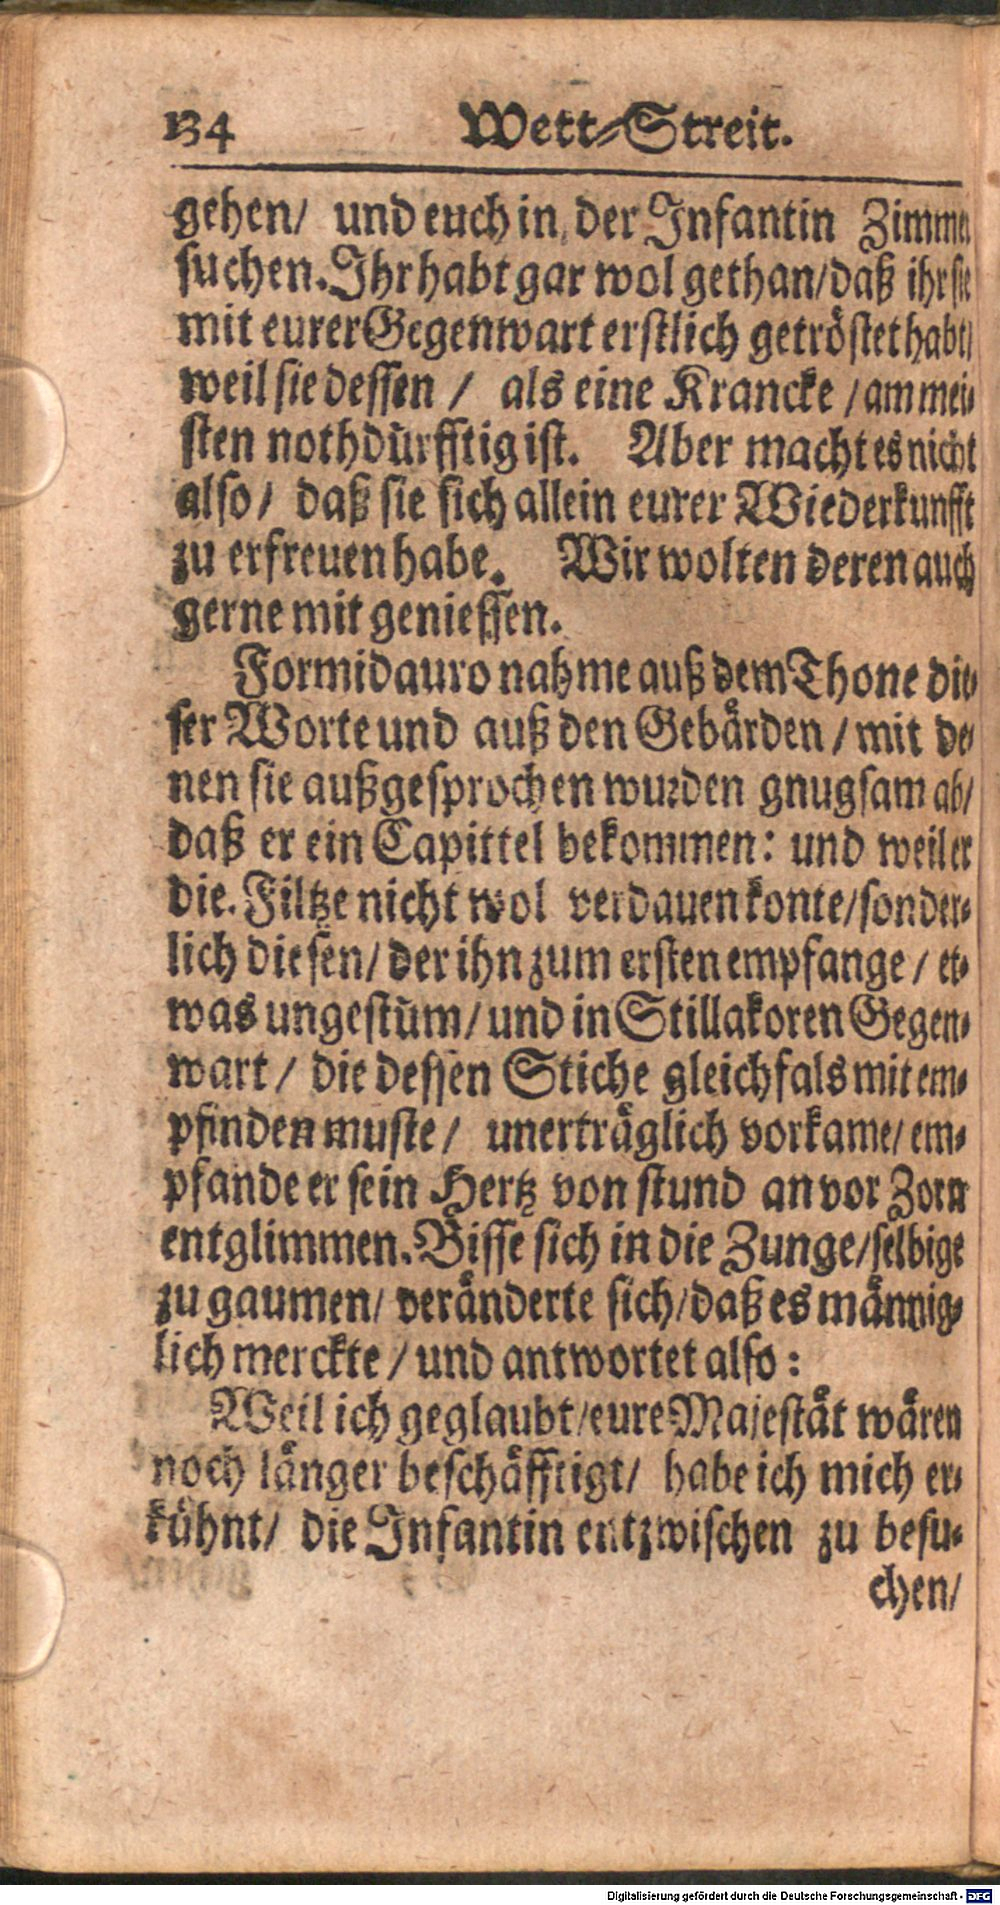 134 Wett-Streit.
gehen/ und euch in der Infantin Zimmer
suchen. Ihr habt gar wol gethan/ daß ihr sie
mit eurer Gegenwart erstlich getröstet habt/
weil sie dessen / als eine Krancke / am mei-
sten nothdürfftig ist. Aber macht es nicht
also/ daß sie sich allein eurer Wiederkunfft
zu erfreuen habe. Wir wolten deren auch
gerne mit geniessen.
Formidauro nahme auß dem Thone die-
ser Worte und auß den Gebärden / mit de-
nen sie außgesprochen wurden gnugsam ab/
daß er ein Capittel bekommen: und weil er
die Filtze nicht wol verdauen konte/ sonder-
lich diesen/ der ihn zum ersten empfange / et-
was ungestüm/ und in Stillakoren Gegen-
wart / die dessen Stiche gleichfals mit em-
pfinden muste / unerträglich vorkame/ em-
pfande er sein Hertz von stund an vor Zorn
entglimmen. Bisse sich in die Zunge/ selbige
zu gaumen/ veränderte sich/ daß es männig-
lich merckte / und antwortet also:
Weil ich geglaubt/ eure Majestät wären
noch länger beschäfftigt/ habe ich mich er-
kühnt/ die Infantin entzwischen zu besu-
chen/
Digitalisierung gefördert durch die Deutsche Forschungsgemeinschaft - DFG